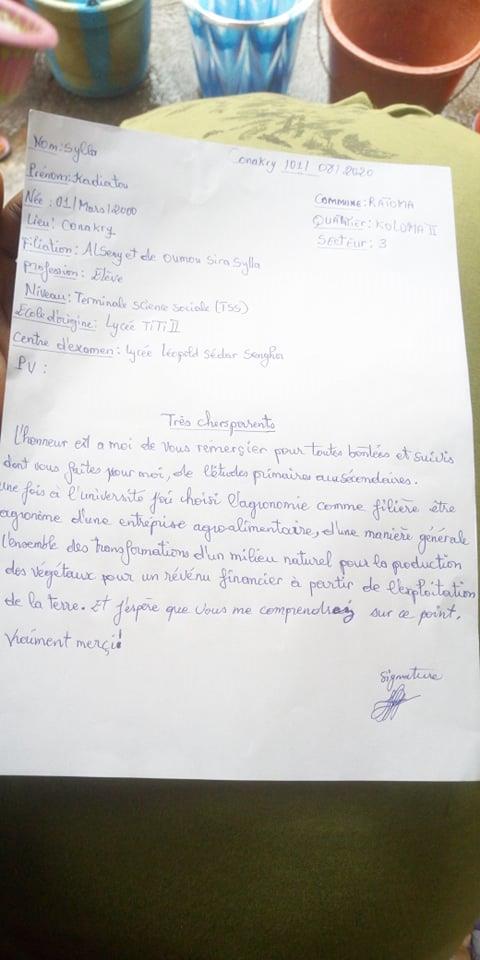 Conakry /01/ 08/2020
Nom: Sylla
Prénom: Kadiatou
Née : 01/Mars/2000
Lieu: Conakry
Filiation: Alseny et de Oumou Sira Sylla
Profession: Élève
Niveau: Terminale science sociale (TSS)
École d'origine: Lycée TITI II
Centre d'examen: Lycée Léopold Sédar Senghor
PV :
COMMUNE: RATOMA
QUARTIER: KOLOMA II
SECTEUR: 3
Très chersparents
L'honneur est a moi de vous remersier pour toutes bontées et suivis
dont vous faites pour moi, de l'études primaires aux sécondaires.
une fois à l'université j'ai choisi l'agronomie comme filière être
agronème d'une entréprise agro-alimentaire, d'une manière générale
l'ensemble des transformations d'un milieu naturel pour la production
des végétaux pour un révénu financier à partir de l'exploitation
de la terre. Et j'espère que vous me comprendrez sur ce point.
Vraiment merçi!
signature